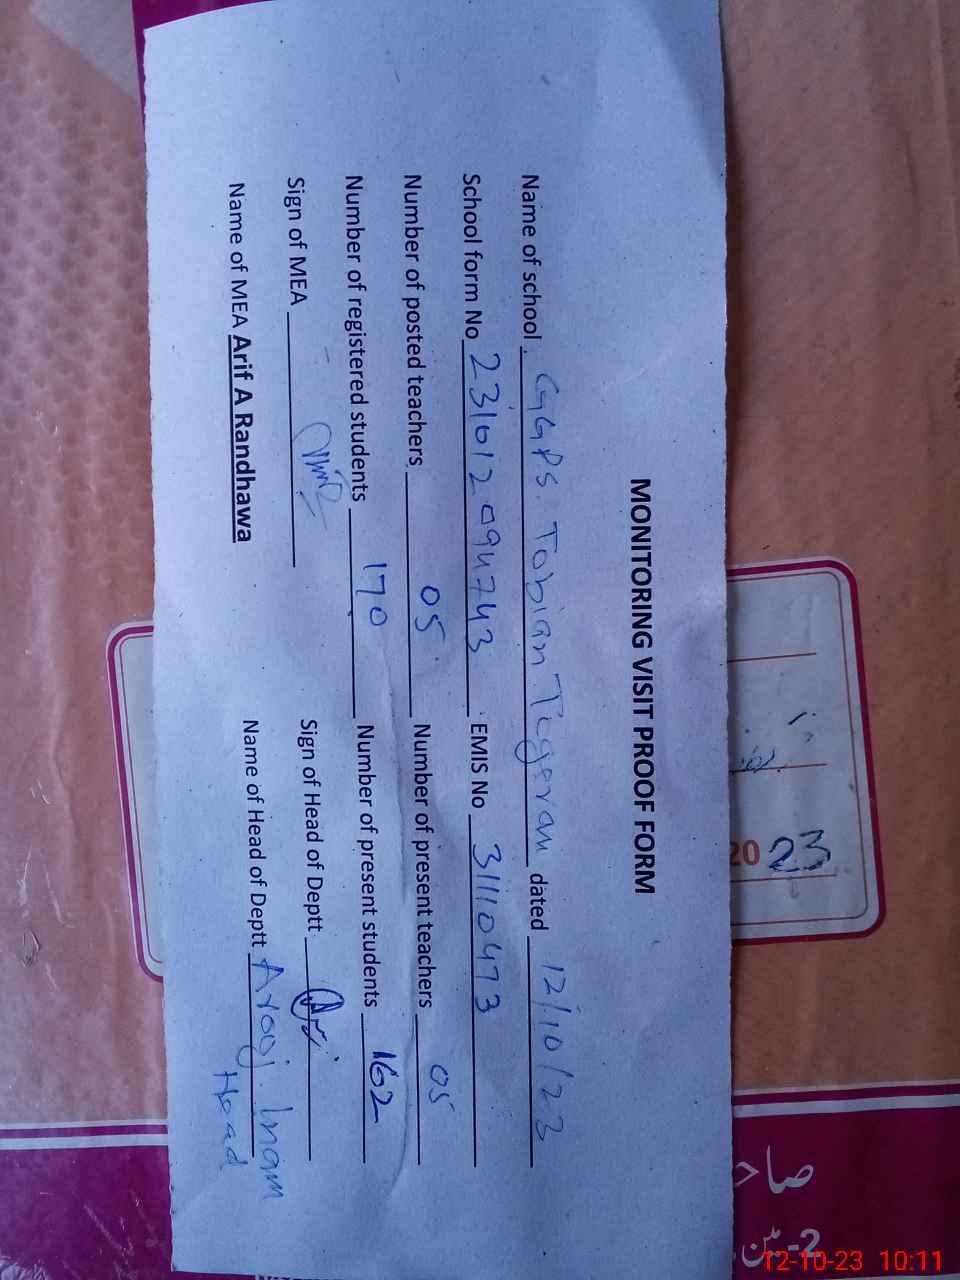 MONITORING VISIT PROOF FORM
Name of school GGPS. Tobian Togeran dated 12/10/23
School form No 231012094743 EMIS No 31110473
Number of posted teachers 05 Number of present teachers 05
Number of registered students 170 Number of present students 162
Sign of MEA Sign of Head of Deptt
Name of MEA Arif A Randhawa Name of Head of Deptt Arooj. Inam
Head
2023
صاحـ
2-
12-10-23 10:11